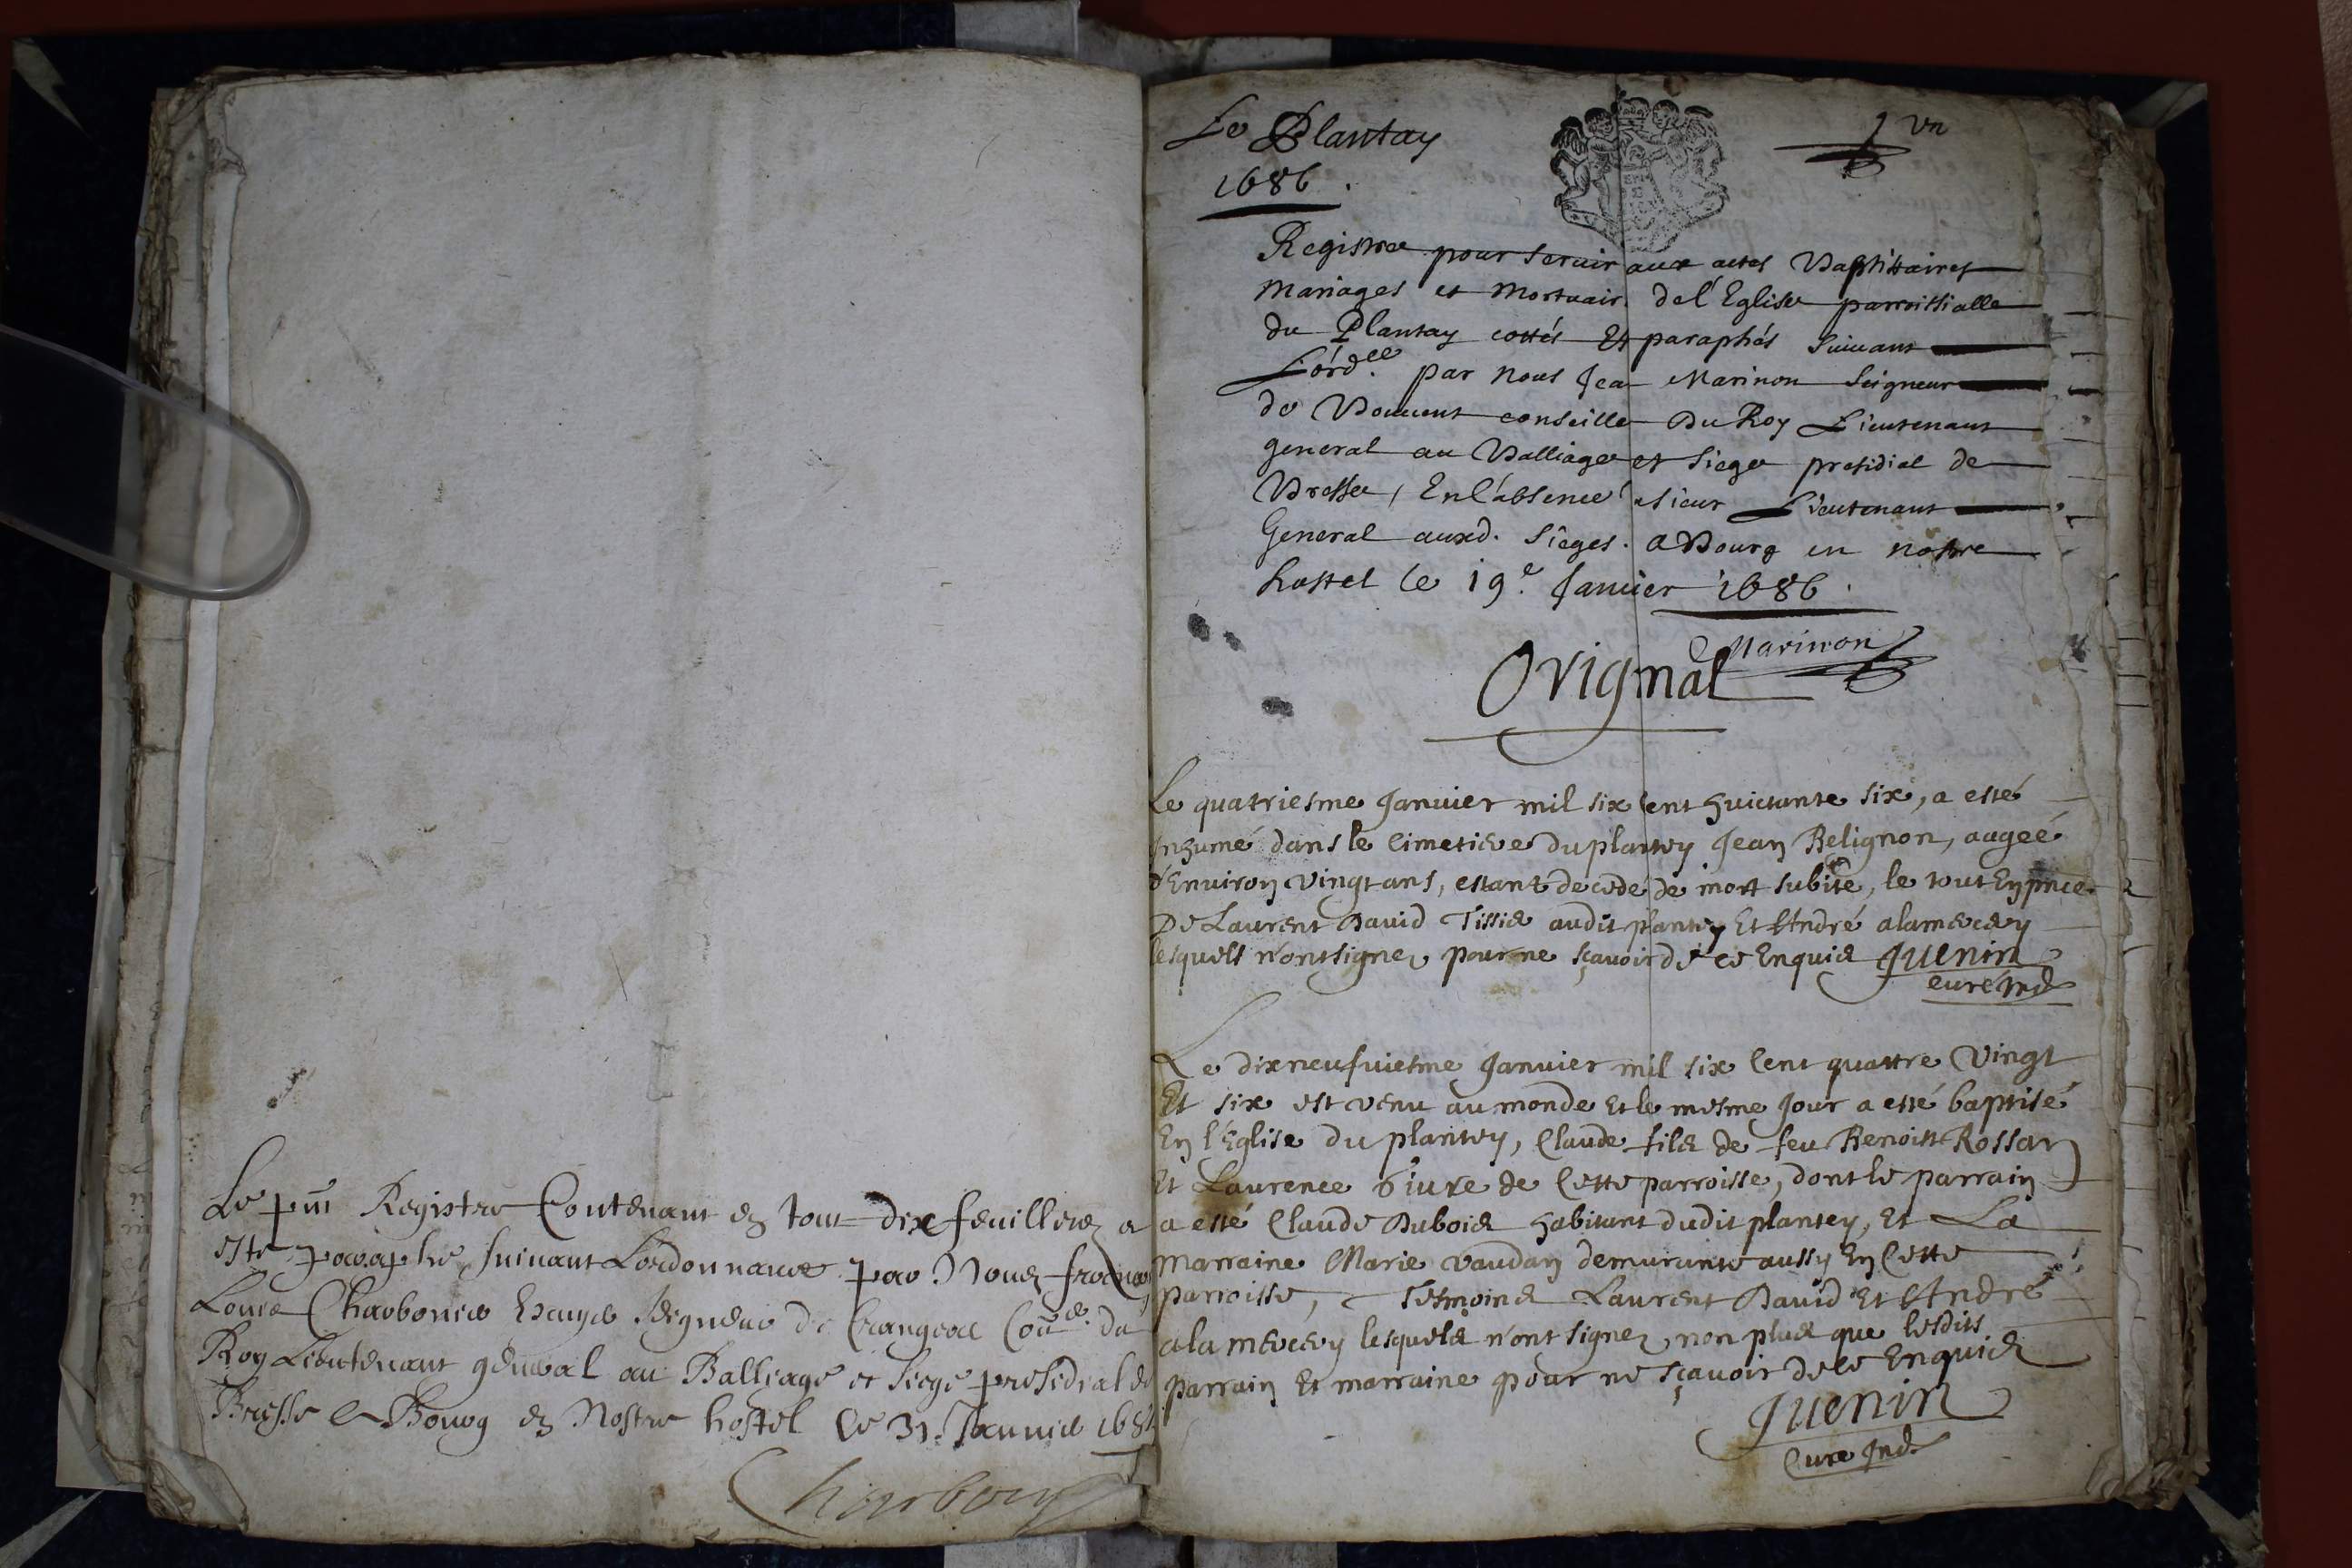 Le pnt Registre Contenant en tout dix feuillets a
este paraphé suivant Lordonnance par Nous
Louis Charbonnier Escuyer Seigneur de Crangeac Coner du
Roy Lieutenant general au Balliage et siege presidial de
Bresse a Bourg en Nostre hostel le 31. Janvier
Charbonnier
Le Plantay
1686.
1 un
Registre pour servir aux actes Baptistaires
Mariages et Mortuair. de l'Eglise parroissialle
du Plantay cottés Et paraphés suivant
L'ord.ce par Nous Jean Marinon seigneur
de conseille Du Roy Lieutenant
general au Balliage et siege presidial de
Bresse, En l'absence sieur Lieutenant
General auxd. sieges. a Bourg en nostre
hostel le 19e. Janvier 1686.
Marinon
Original
Le quatriesme Janvier mil six cent huictante six, a esté
Inhumé dans le cimetiere du plantey Jean Belignon, aagéé
d'Environ vingt ans, estant decedé de mort subite, le tout En pnce
De Laurent David Tissier audit plantey Et André alamercery
lesquels n'ont signez pour ne sçavoir de ce Enquis Juenin
curé Ind.
Le dixneufviesme Janvier mil six cent quattre vingt
Et six est venu au monde Et le mesme Jour a esté baptisé
En l'Eglise du plantey, Claude fils de feu Benoist Rossan
Et Laurence de Cette parroisse, dont le parrain
a esté Claude Dubois habitant dudit plantey, Et La
marraine Marie vaudan demurante aussy En Cette
parroisse, Tesmoins Laurent David Et André
alamercery lesquels n'ont signez non plus que lesdits
parrain Et marraine pour ne sçavoir de ce Enquis
Juenin
Curé Ind.